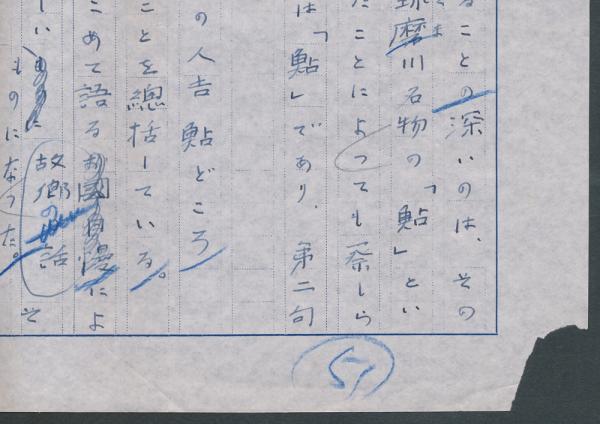 ることの深いのは、その
球磨川名物の「鮎」とい
たことによつても察しら
は「鮎」であり、第二句
の人吉鮎どころ
ことを總括している。
こめて語るお國自慢によ
しい 故郷の話 そ
ものになつた。
51